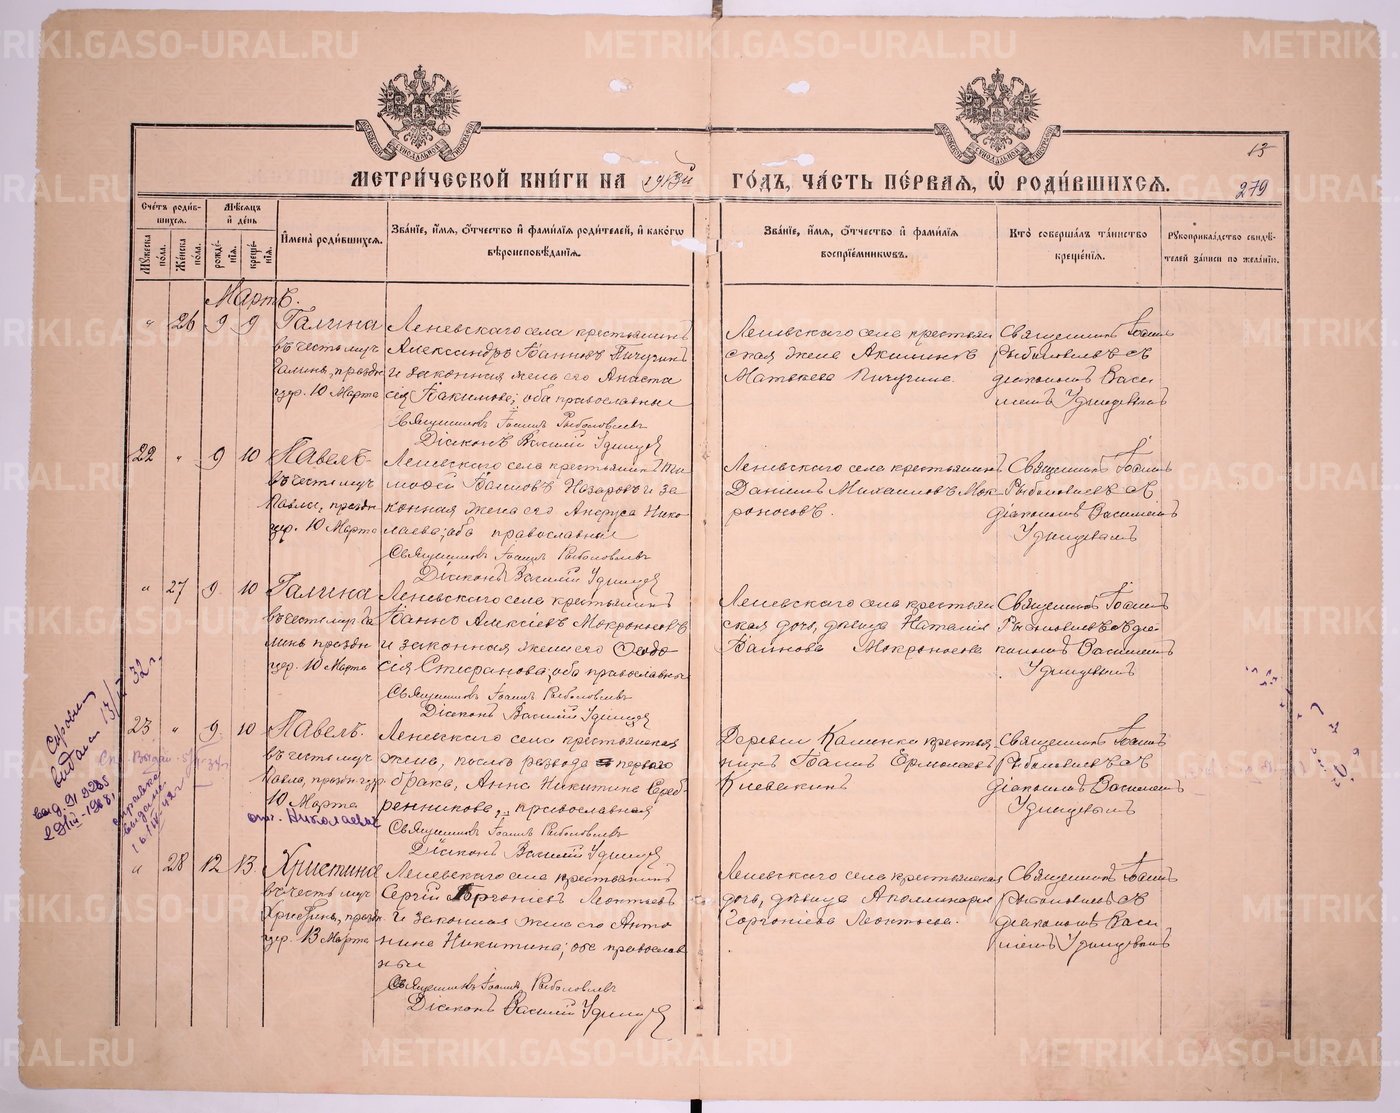 METRIKI.GASO-URAL.RU
МОСКОВСКОЙ СѴНОДАЛЬНОЙ ТИПОГРАФІИ
МОСКОВСКОЙ СѴНОДАЛЬНОЙ ТИПОГРАФІИ
13
279
МЕТРИ́ЧЕСКОЙ КНИ́ГИ НА 1913й ГО́ДЪ, ЧА́СТЬ ПЕ́РВАЯ, Ѡ҆ РОДИ́ВШИХСЯ.
Сче́тъ роди́вшихся.
Му́жеска по́ла.
Же́нска по́ла.
Мѣ́сяцъ и҆ де́нь
рожде́нїя.
креще́нїя.
И҆мена̀ роди́вшихся.
Зва́нїе, и҆́мя, ѻ҆́тчество и҆ фами́лїя роди́телей, и҆ како́гѡ вѣроисповѣ́данїя.
Зва́нїе, и҆́мя, ѻ҆́тчество и҆ фами́лїя воспрїе́мниковъ.
Кто̀ соверша́лъ та́инство креще́нїя.
Рукоприкла́дство свидѣ́телей за́писи по жела́нїю.
Мартъ.
" 26 9 9 Галина
въ честь муч.
Галины, праздн.
цер. 10 Марта
Леневскаго села крестьянинъ
Александръ Іаннов Пичугинъ
и законная жена его Анаста
сія Іакимова; оба православные
Священникъ Іоаннъ Рыболовлев
Діаконъ Василій Удинцев
Леневскаго села крестьян
ская жена Акилина
Матвеева Пичугина.
Священникъ Іоаннъ
Рыболовлевъ съ
діакономъ Васи
ліемъ Удинцевымъ
22 " 9 10 Павелъ
въ честь муч.
Павла, праздн.
цер. 10 Марта
Леневскаго села крестьянинъ Ти
мофей Іаннов Назаровъ и за
конная жена его Нико
лаева; оба православные
Священникъ Іоаннъ Рыболовлевъ
Діаконъ Василій Удинцев
Леневскаго села крестьянинъ
Даніилъ Михаиловъ Мок
роносовъ.
Священникъ Іоаннъ
Рыболовлевъ съ
діакономъ Василіемъ
Удинцевымъ
" 27 9 10 Галина
въ честь муч. Га
лины праздн.
цер. 10 Марта
Леневскаго села крестьянинъ
Алексіевъ Мокроносовъ
и законная жена его Ѳеодо
сія Стефанова; оба православные
Священникъ Іоаннъ Рыболовлев
Діаконъ Василій Удинцев
Леневскаго села крестьян
ская дочь, девица Наталія
Іаннова Мокроносова
Священникъ Іоаннъ
Рыболовлевъ съ діа
кономъ Василіемъ
Удинцевымъ
23 " 9 10 Павелъ
въ честь муч.
Павла, праздн. цер.
10 Марта
отч. Николаевич
Леневскаго села крестьянская
жена, послѣ развода перваго
брака, Анна Никитина Сереб
ренникова, православная
Священникъ Іоаннъ Рыболовлевъ
Діаконъ Василій Удинцев
Деревни Каменки крестья
нинъ Іоаннъ Ермолаевъ
Киевекин
Священникъ Іоаннъ
Рыболовлевъ съ
діакономъ Василіемъ
Удинцевымъ
Справка
выдана
32 г.
справка
выдана
42 г
" 28 12 13 Христина
въ честь муч.
Христины, праздн.
цер. 13 Марта
Леневскаго села крестьянинъ
Сергій Горгоніевъ Леонтьевъ
и законная жена его Анто
нина Никитина; оба православ
ные
Священникъ Іоаннъ Рыболовлев
Діаконъ Василій Удинцев
Леневскаго села крестьянская
дочь, девица Аполлинария
Горгоніева Леонтьева.
Священникъ Іоаннъ
Рыболовлевъ съ
діакономъ Васи
ліемъ Удинцевымъ